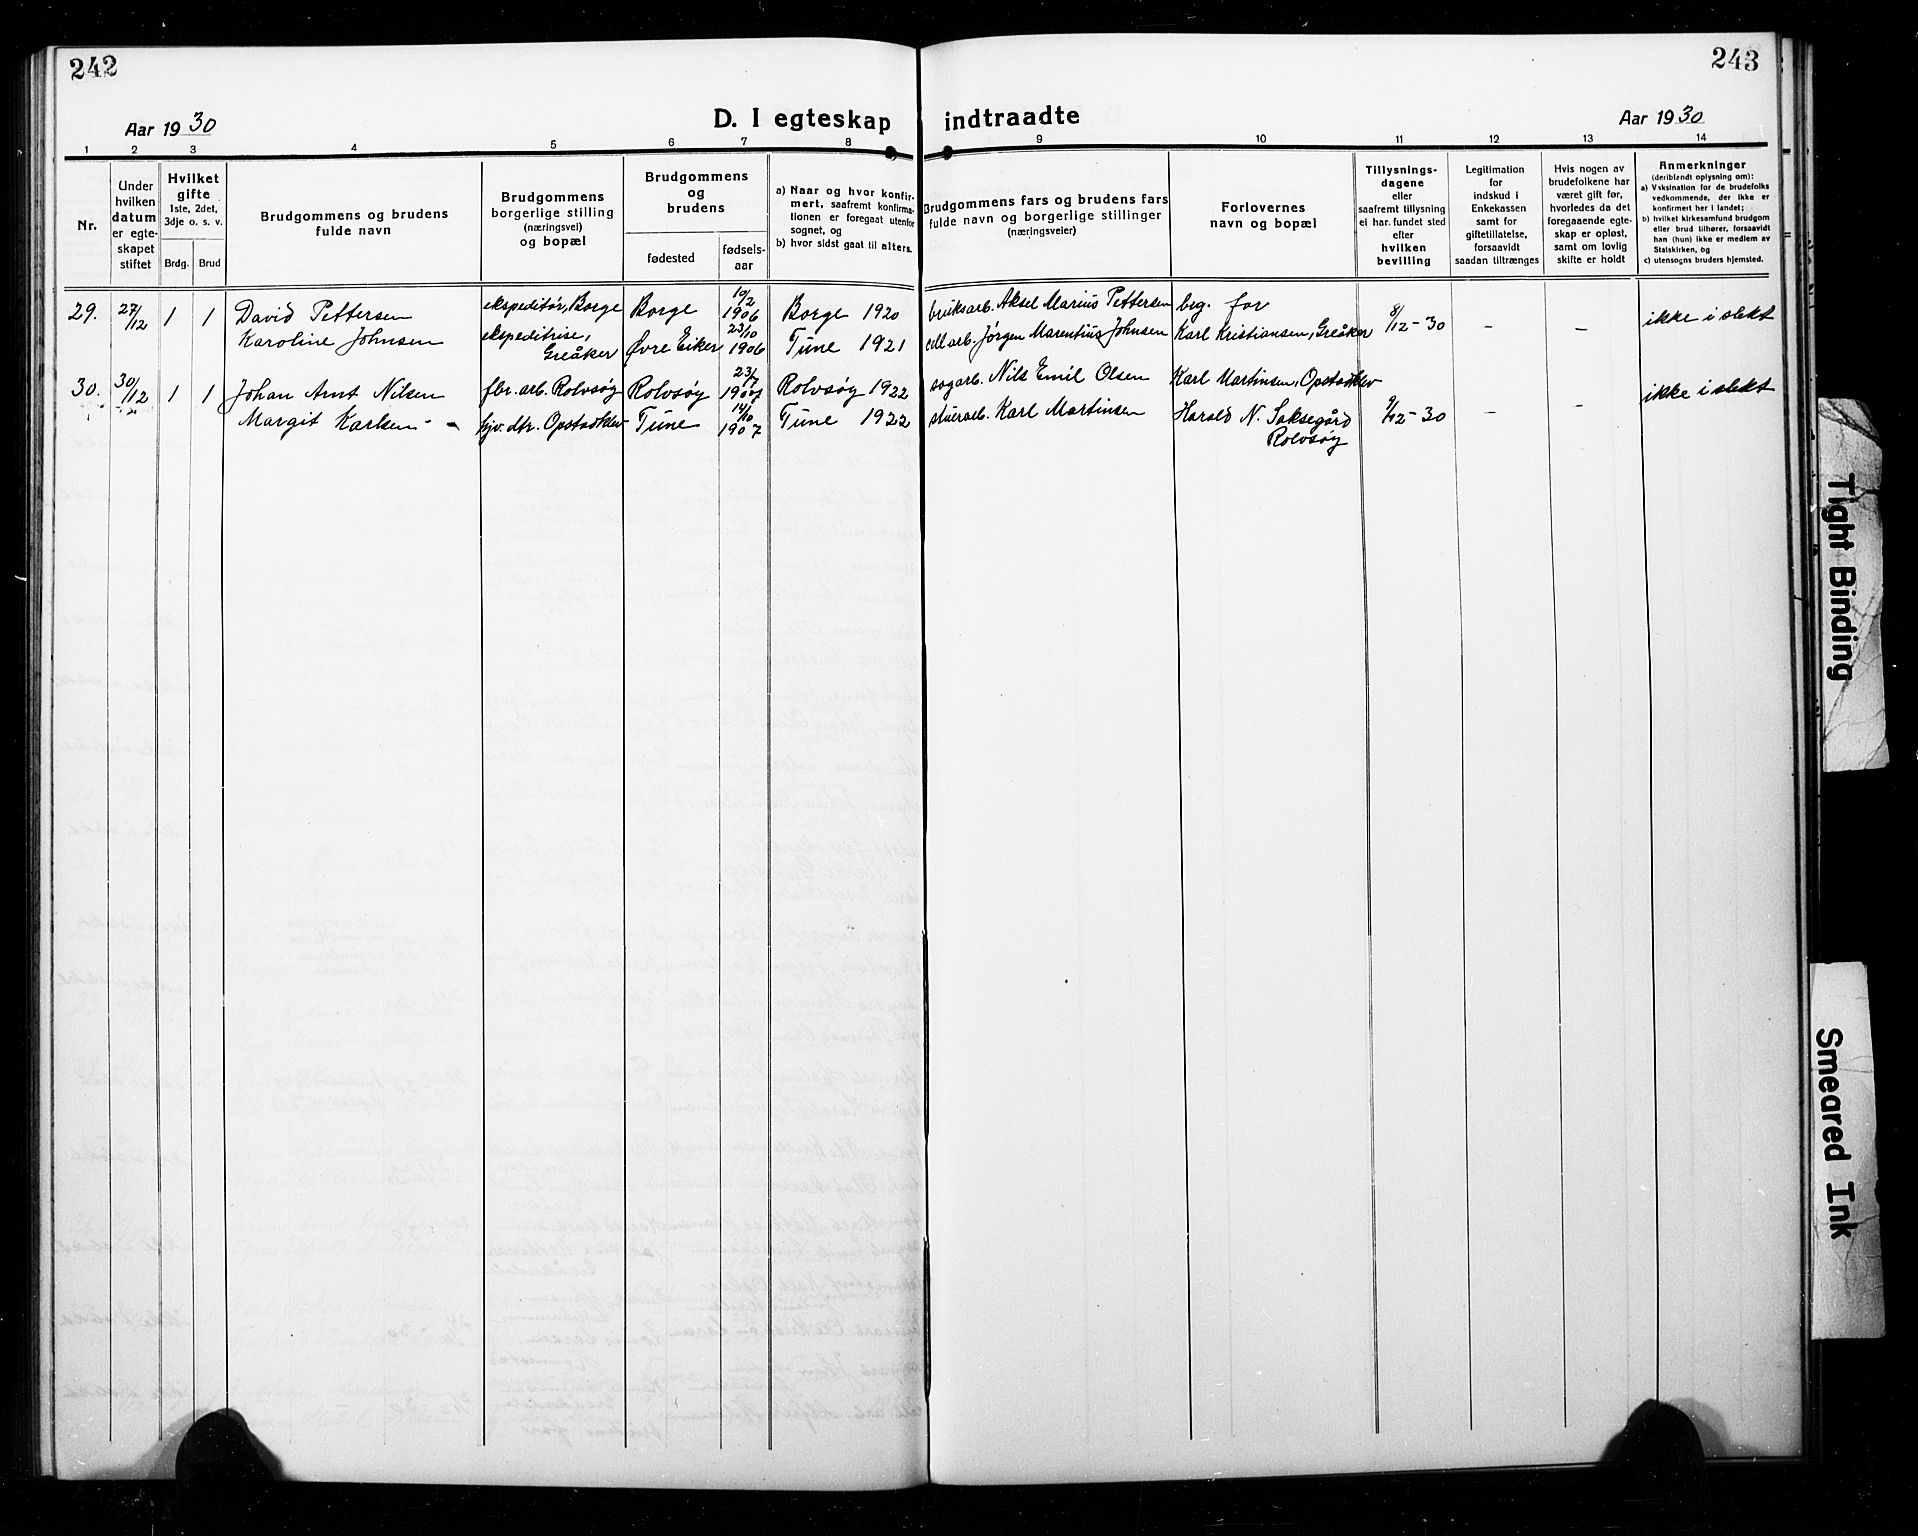 242
243
Aar 1930
D. I egteskap indtraadte
Aar 1930
1 2 3 4 5 6 7 8 9 10 11 12 13 14
Nr.
Under
hvilken
datum
er egte-
skapet
stiftet
Hvilket
gifte
1ste, 2det,
3dje o. s. v.
Brdg. Brud
Brudgommens og brudens
fulde navn
Brudgommens
borgerlige stilling
(næringsvei)
og bopæl
Brudgommens
og
brudens
fødested
fødsels-
aar
a) Naar og hvor konfir-
mert, saafremt konfirma-
tionen er foregaat utenfor
sognet, og
b) hvor sidst gaat til alters.
Brudgommens fars og brudens fars
fulde navn og borgerlige stillinger
(næringsveier)
Forlovernes
navn og bopæl
Tillysnings-
dagene
eller
saafremt tillysning
ei har fundet sted
efter
hvilken
bevilling
Legitimation
for
indskud i
Enkekassen
samt for
giftetillatelse,
forsaavidt
saadan tiltrænges
Hvis nogen av
brudefolkene har
været gift før,
hvorledes da det
foregaaende egte-
skap er opløst,
samt om lovlig
skifte er holdt
Anmerkninger
(deriblendt oplysning om):
a) Vaksination for de brudefolks
vedkommende, der ikke er
konfirmert her i landet;
b) hvilket kirkesamfund brudgom
eller brud tilhører, forsaavidt
han (hun) ikke er medlem av
Statskirken, og
c) utensogns bruders hjemsted.
29. 27/12 1 1 David Pettersen ekspeditør, Borge Borge 19/2 1906 Borge 1920 bruksarb. Aksel Marius Pettersen beg. for 8/12-30 - - ikke i slekt
Karoline Johnsen ekspeditrise, Greåker Øvre Eiker 23/10 1906 Tune 1921 cell.arb. Jørgen Marentius Johnsen Karl Kristiansen, Greåker
30. 30/12 1 1 Johan Arnt Nilsen fbr. arb. Rolvsøy Rolvsøy 23/7 1907 Rolvsøy 1922 sagarb. Nils Emil Olsen Karl Martinsen, Opstadklev 9/12-30 - - ikke i slekt
Margit Karlsen - hjv. dtr. Opstadklev Tune 14/10 1907 Tune 1922 stuerarb. Karl Martinsen Harald N. Saksegård
Rolvsøy
Tight Binding
Smeared Ink